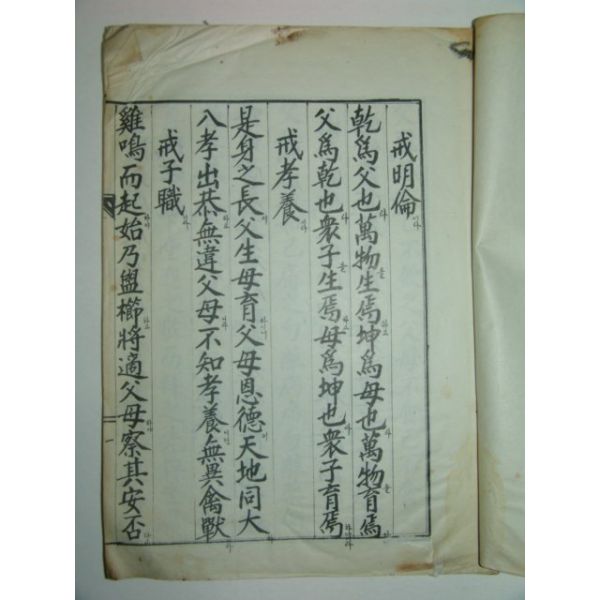 戒明倫
乾爲父也萬物生焉坤爲母也萬物育焉
父爲乾也衆子生焉母爲坤也衆子育焉
戒孝養
是身之長父生母育父母恩德天地同大
入孝出恭無違父母不知孝養無異禽獸
戒子職
雞鳴而起始乃盥櫛將適父母察其安否